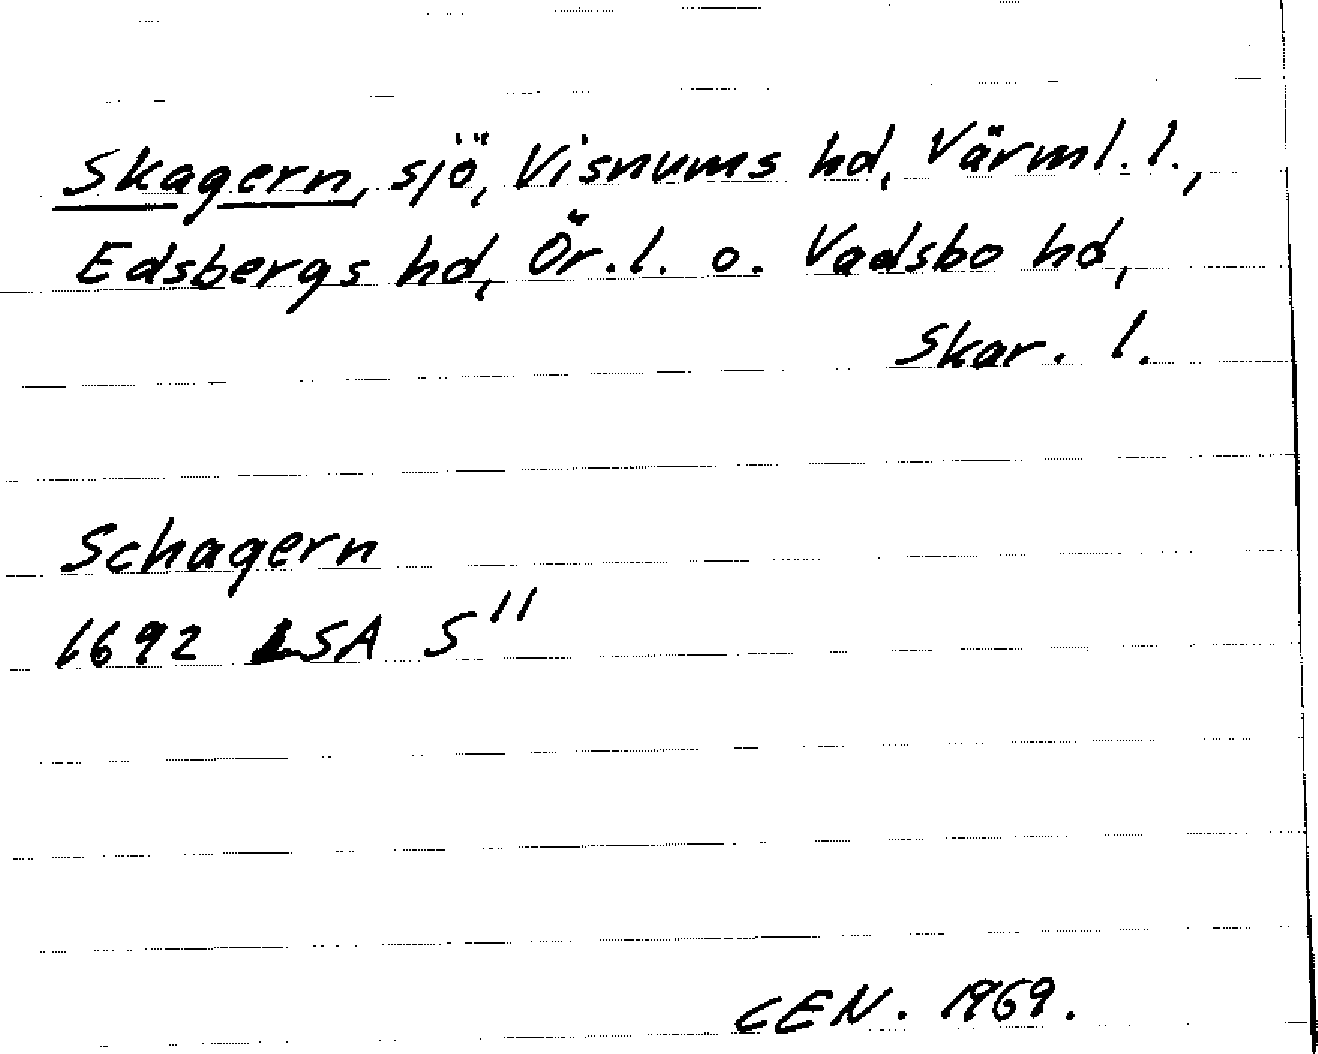 Skagern, sjö, Visnums hd, Värml. l.,
Edsbergs hd, Ör. l. o. Vadsbo hd,
Skar. l.
Schagern
1692 LSA S 11
CEN. 1969.